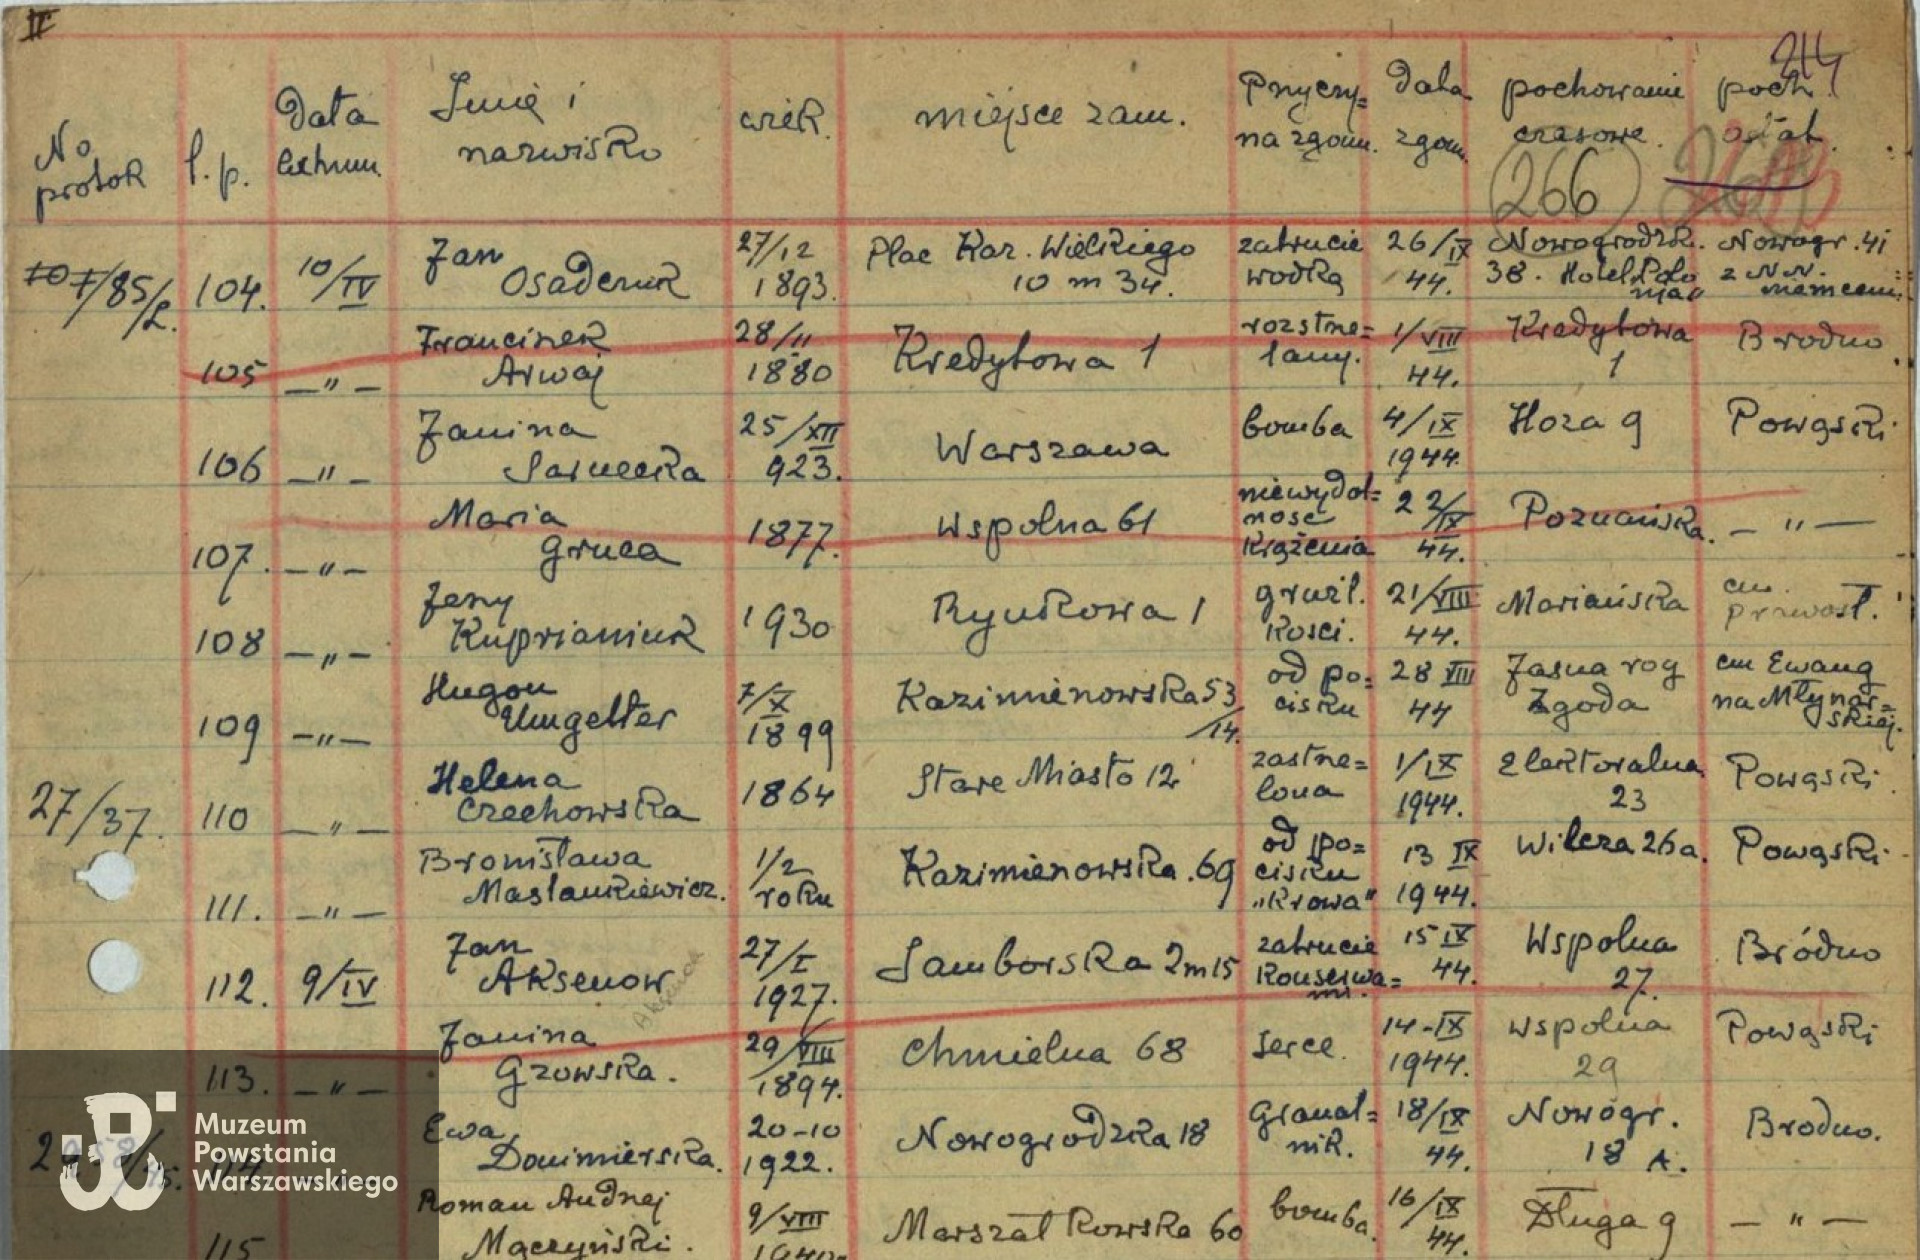 II
214
No protok
l. p.
Data
Imię i nazwisko
wiek.
miejsce zam.
Przyczy= na zgonu.
Data zgonu.
pochowanie czasowe.
poch. ostat.
266
85/L. 104. 10/IV Jan Osadczuk 27/12 1893. Plac Kaz. Wielkiego 10 m 34. zatrucie wodką 26/IX 44. Nowogrodzk. 38. Hotel Polo nja" Nowogr. 41 z N.N. niemcem
105 — " — Franciszek Arwaj 28/11 1880 Kredytowa 1 rozstrze= lany. 1/VIII 44. Kredytowa 1 Brodno
106 — " — Janina Sarnecka 25/XII 923. Warszawa bomba 4/IX 1944. Hoza 9 Powąski
107. — " — Maria Gruca 1877. Wspolna 61 niewydol= nosc krążenia 22/IX 44. Poznańska. — " —
108 — " — Jerzy Kuprianiuk 1930 Rynkowa 1 gruźl. kosci. 21/VIII 44. Mariańska cm. prawosł.
109 — " — Hugon Umgelter 7/X 1899 Kazimierzowska 53 /14. od po= cisku 28 VIII 44 Jasna rog Zgoda cm Ewang na Młynar= skiej.
27/37. 110 — " — Helena Czechowska 1864 Stare Miasto 12 zastrze= lona 1/IX 1944. Elektoralna 23 Powąski
111. — " — Bronisława Maslankiewicz. 1/2 roku Kazimierzowska .69 od po= cisku „Krowa" 13 IX 1944. Wilcza 26a. Powąski
112. 9/IV Jan Aksenow 27/I 1927. Samborska 2 m 15 zatrucie konserwa= mi. 15 IX 44. Wspolna 27. Bródno
113. — " — Janina Gzowska. 29/VIII 1894. Chmielna 68 serce. 14-IX 1944. Wspolna 29 Powąski
114 Ewa Donimierska. 20-10 1922. Nowogrodzka 18 Granat= nik. 18/IX 44. Nowogr. 18 A. Brodno.
115 Roman Andrzej Mączyński. 9/VIII Marszałkowska 60 bomba. 16/IX 44. Długa 9 — " —
Muzeum
Powstania
Warszawskiego